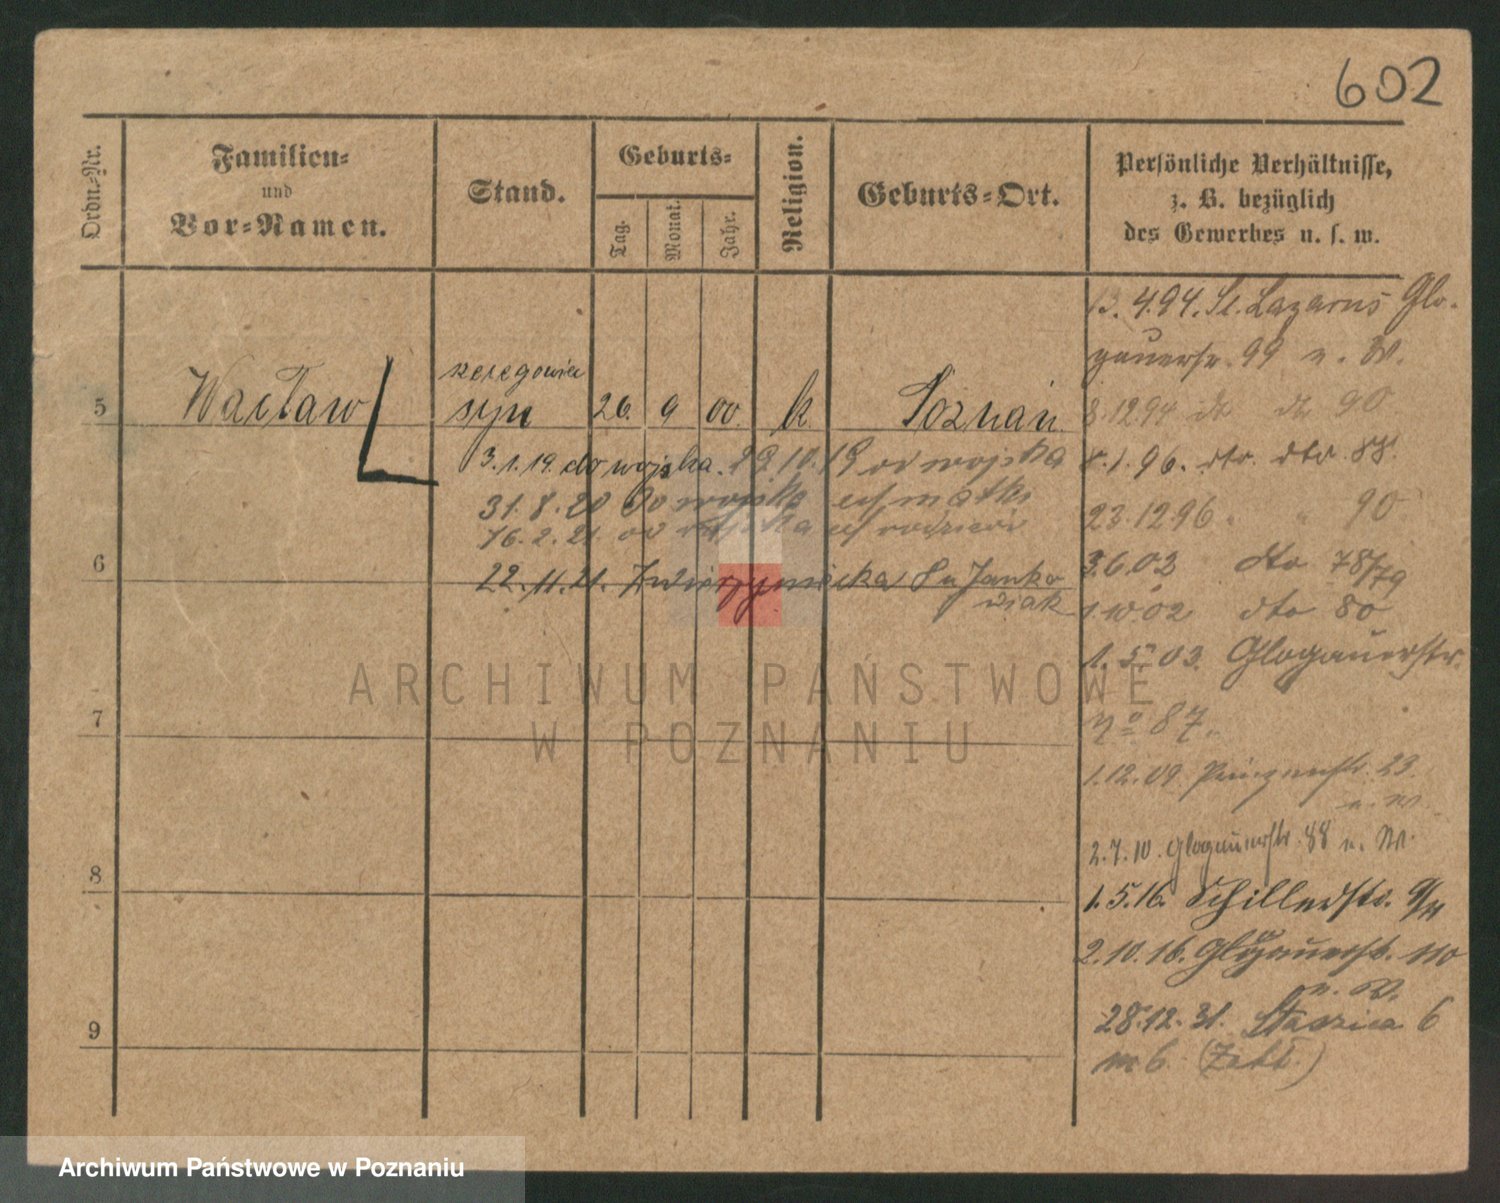 602
Ordn.-Nr.
Familien-
und
Vor-Namen.
Stand.
Geburts-
Tag.
Monat.
Jahr.
Religion.
Geburts-Ort.
Persönliche Verhältnisse,
z. B. bezüglich
des Gewerbes u. s. w.
13.4.94. St. Lazarus Glo-
gauerstr. 99 n. W.
5 Wacław syn 26. 9 00. k. Poznań
8.12.94 dto 90
3.1.19. do wojska. 29.10.19 od wojska
8.1.96. dto. dto 88.
31.8.20 do wojska matki
23.1296. " 90
16.2.21. od wojska rodzicow
6
3.6.02 dto 78/79
22.11.21. Zwierzyniecka 8 u Janko
wiak
1.10.02 dto 80
1.5.03. Glogauerstr.
7
No 87.
1.12.09. Prinzenstr. 23.
n. W.
2.7.10. Glogauerstr. 88 n. W.
8
1.5.16. Schillerstr.
2.10.16. Glogauerstr. 110
n. W.
28.12.31. Staszica 6
9
m 6.
ARCHIWUM PAŃSTWOWE
W POZNANIU
Archiwum Państwowe w Poznaniu